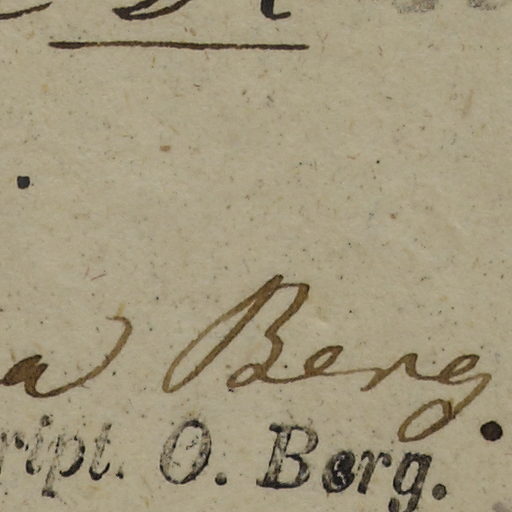 Berg.
ript. O. Berg.